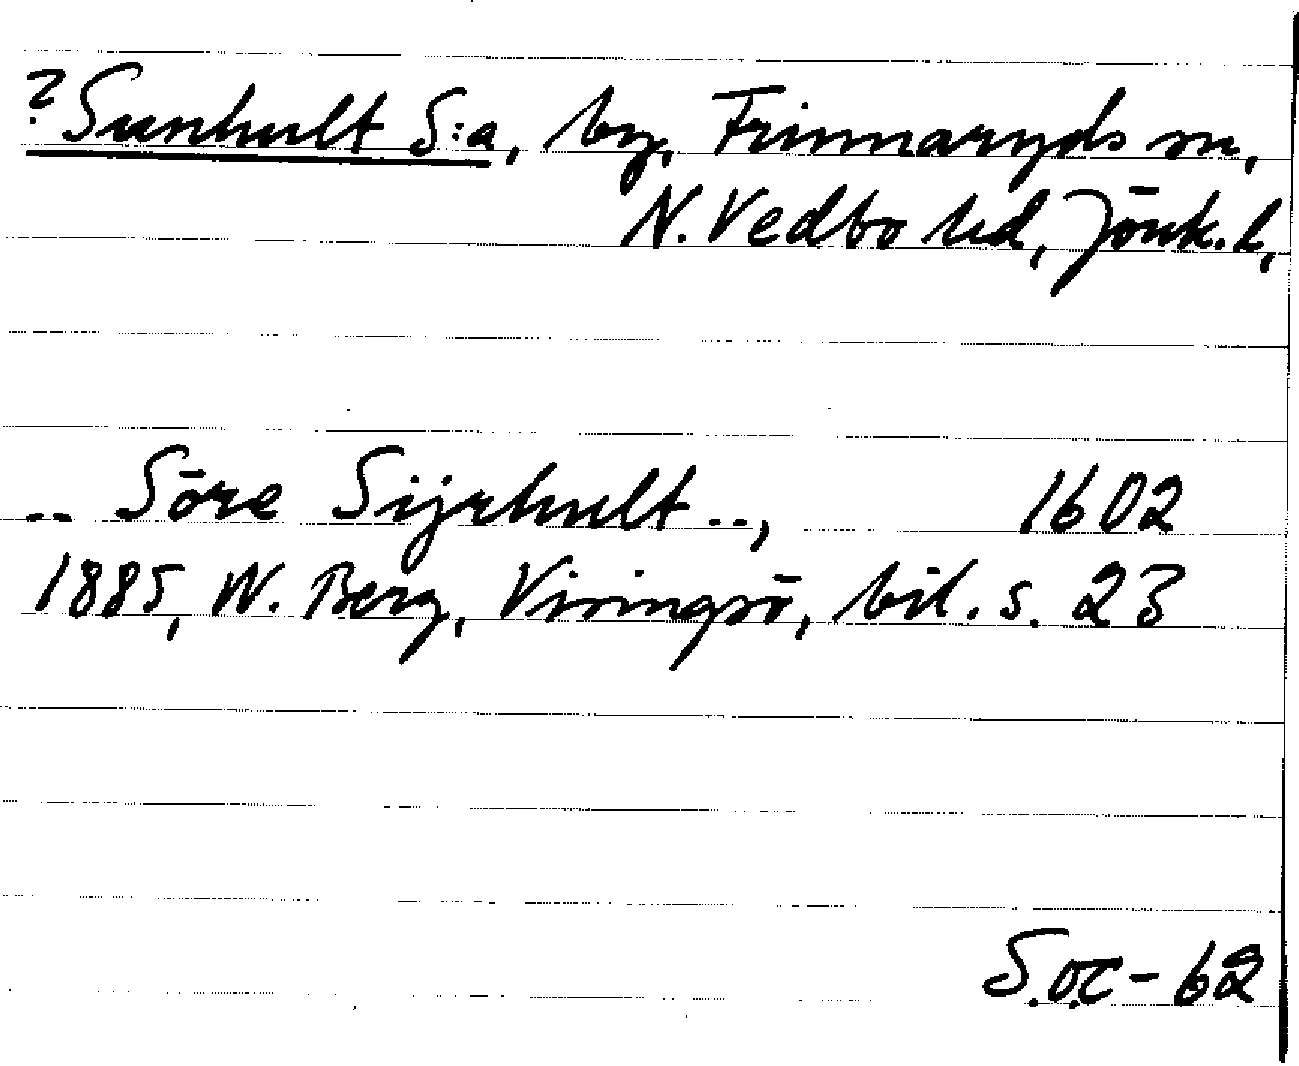 ? Sunhult S:a, by, Frinnaryds sn,
N. Vedbo hd, Jönk. l,
.. Söre Sijrhult .., 1602
1885, W. Berg, Visingsö, bil. s. 23
S.O.C - 62